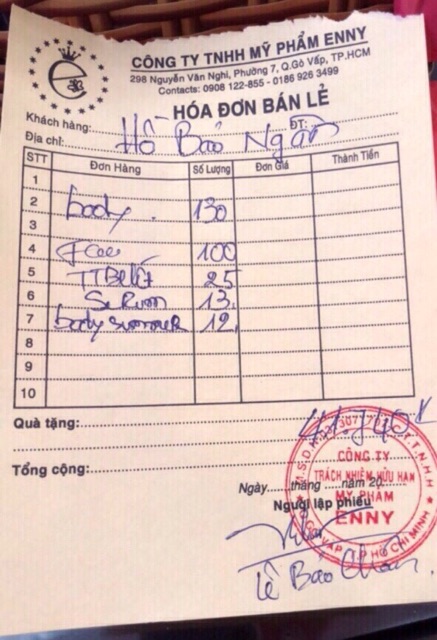 CÔNG TY TNHH MỸ PHẨM ENNY
298 Nguyễn Văn Nghi, Phường 7, Q.Gò Vấp, TP.HCM
Contacts: 0908 122-855 - 0186 926 3499
HÓA ĐƠN BÁN LẺ
Khách hàng: Hồ Bảo Ngân ĐT:
Địa chỉ:
STT Đơn Hàng Số Lượng Đơn Giá Thành Tiền
1
2 body. 130
3
4 100
5 25
6 Serum 13
7 body summer 12
8
9
10
Quà tặng:
Tổng cộng:
Ngày.....tháng.....năm 20
Người lập phiếu
CÔNG TY
TRÁCH NHIỆM HỮU HẠN
MỸ PHẨM
ENNY
Q.GÒ VẤP T.P HỒ CHÍ MINH
Lê Bảo